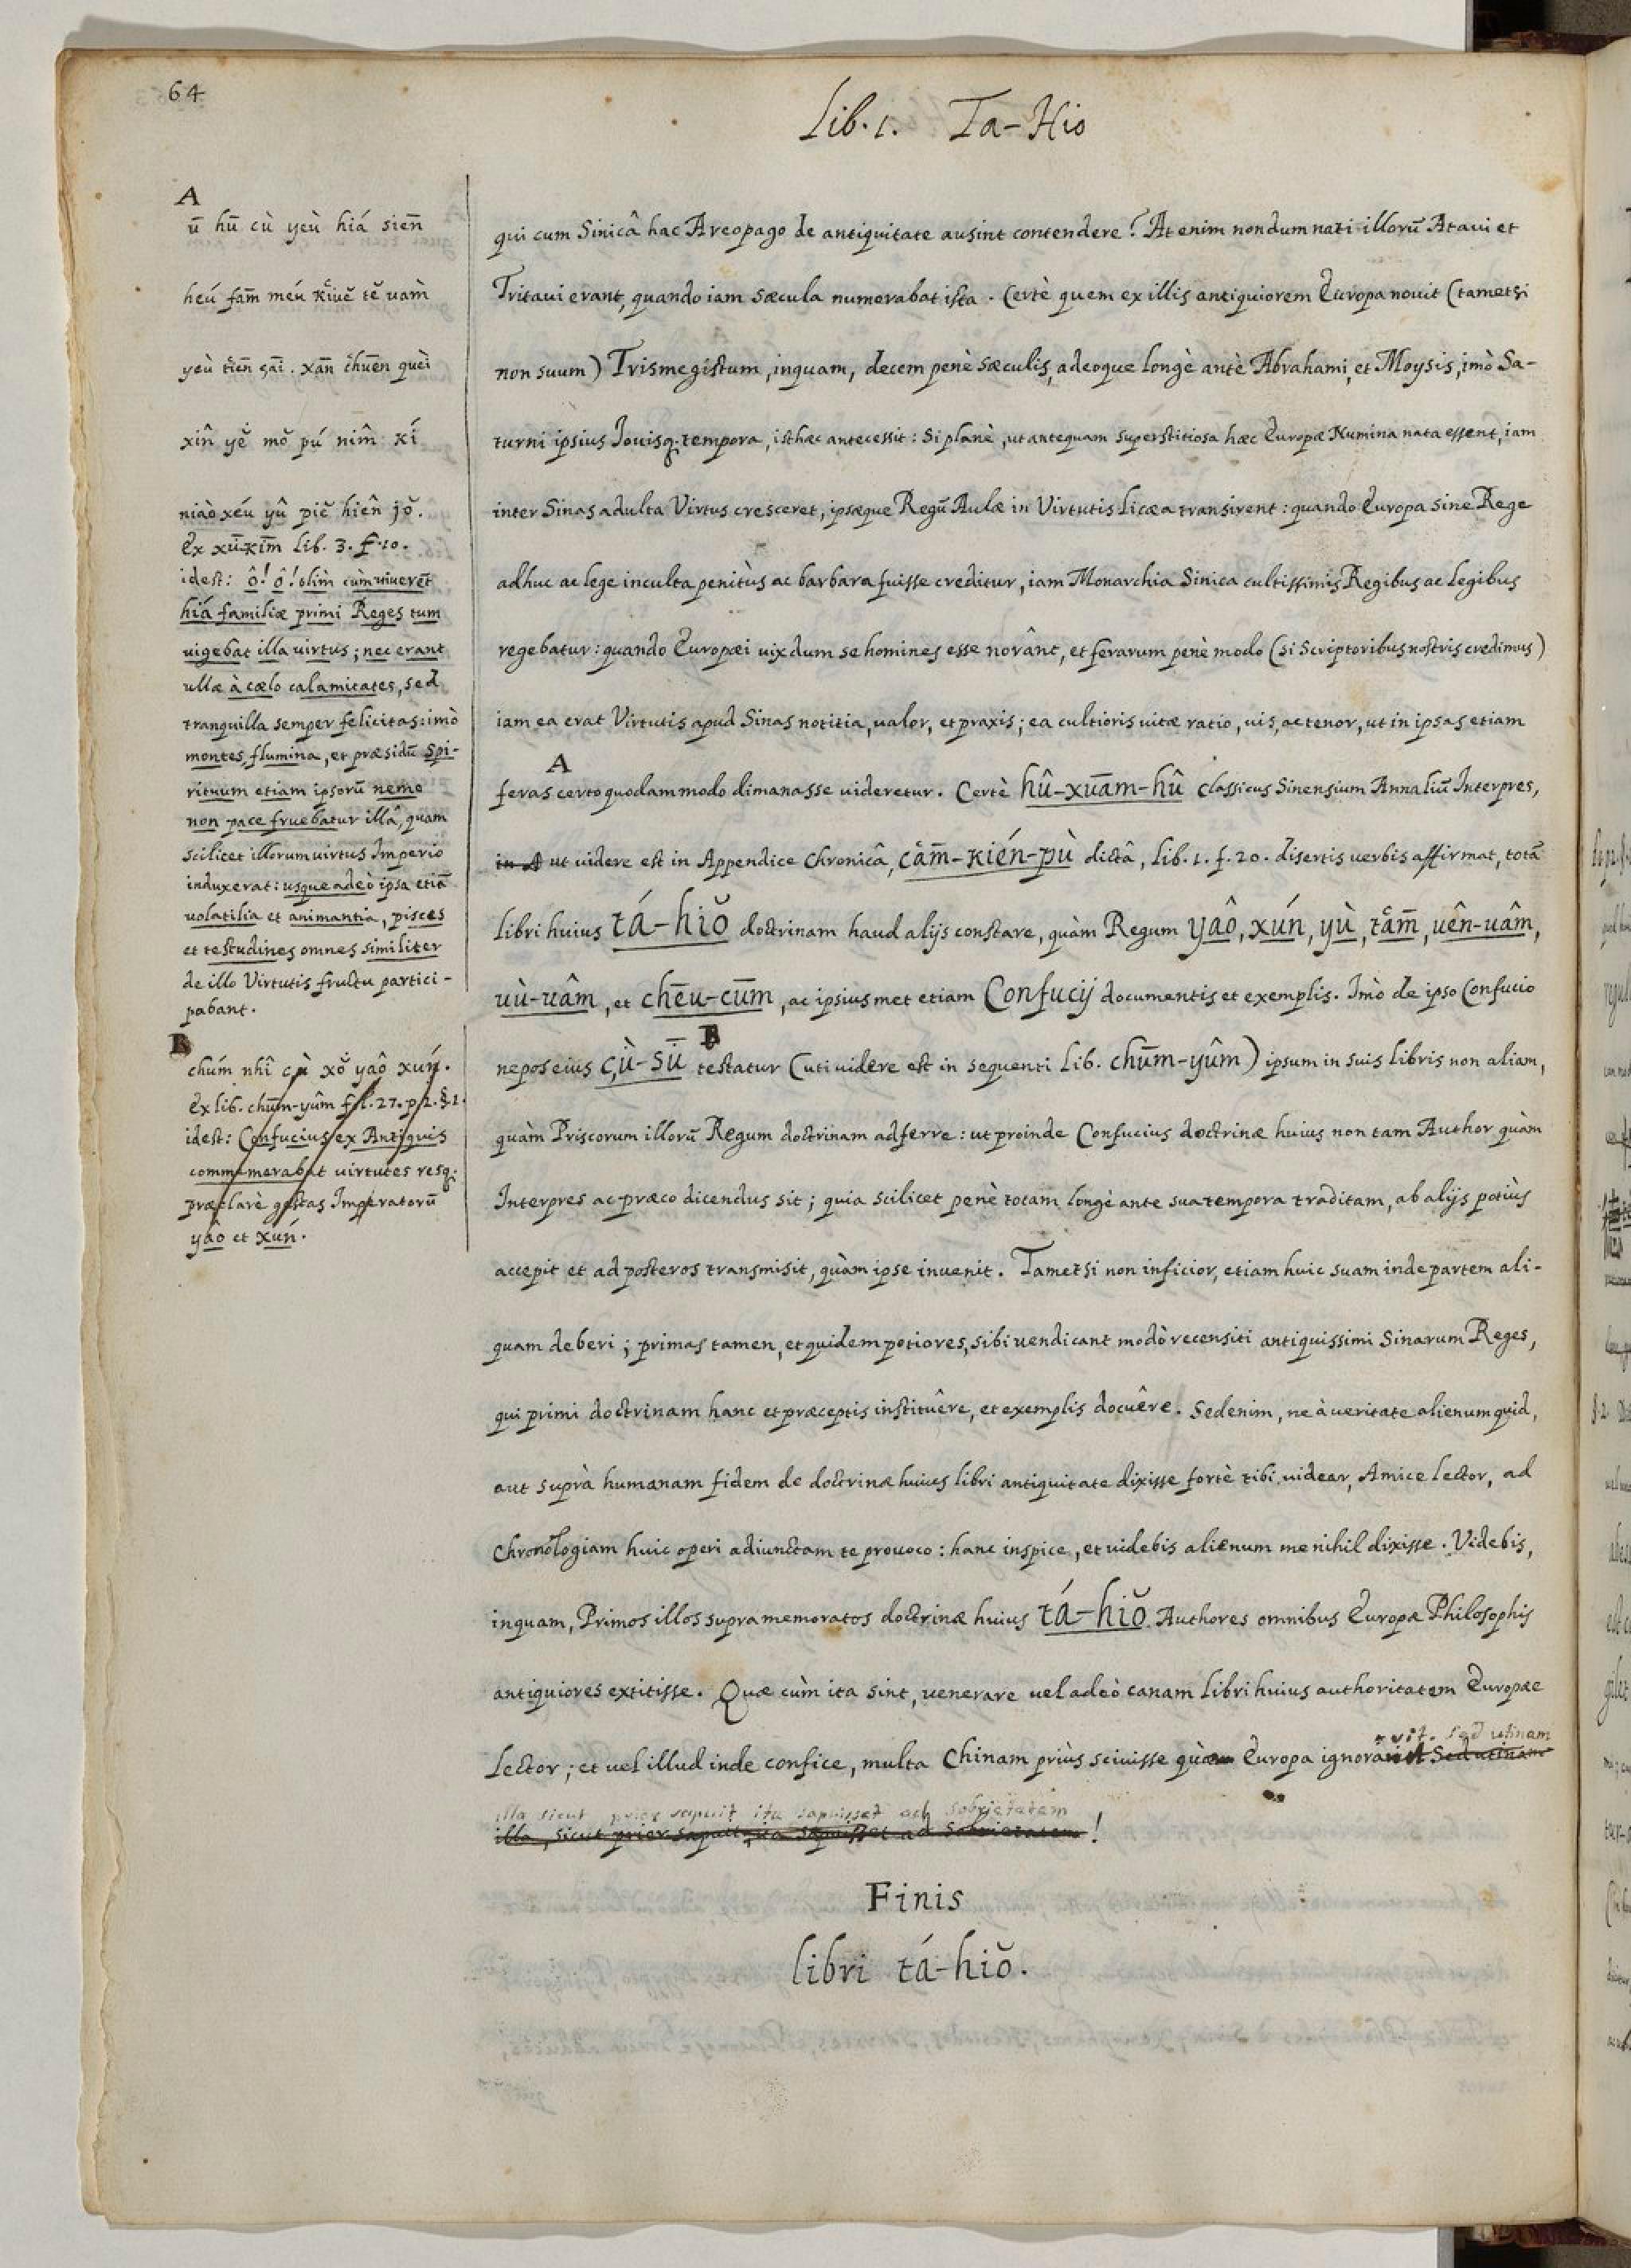 64
Lib. 1. Ta-Hio
A
ū hū cù yeù hiá siēn
heú fam̄ meú kiuĕ tĕ uam̀
yeù tiēn çāi. xān chuēn queì
xin̂ yĕ mŏ pú nim̂ kí
niào xéu yû piĕ hiên jŏ.
Ex xū-kim̄ Lib. 3. f. 10.
idest: ô! ô! olim̀ cùm uiuerēt
hiá familiæ primi Reges tum
uigebat illa uirtus; nec erant
ullæ à cœlo calamitates, sed
tranquilla semper felicitas: imò
montes, flumina, et præsidū Spi-
rituum etiam ipsorū nemo
non pace fruebatur illâ, quam
scilicet illorum uirtus Imperio
induxerat: usque adeò ipsa etiā
uolatilia et animantia, pisces
et testudines omnes similiter
de illo Virtutis fructu partici-
pabant.
B
chúm nhî çù xŏ yaô xuń.
Ex lib. chūm-yûm f. 27. p. 2. §. 1.
idest: Confucius ex Antiquis
commemorabat uirtutes resq.
præclarè gestas Imperatorū
yâo et xún.
qui cum Sinicâ hac Areopago de antiquitate ausint contendere? At enim nondum nati illorū Ataui et
Tritaui erant, quando iam sæcula numerabat ista. Certè quem ex illis antiquiorem Europa nouit (tametsi
non suum) Trismegistum, inquam, decem penè sæculis, adeoque longè antè Abrahami, et Moysis, imò Sa-
turni ipsius Iouisq. tempora, isthæc antecessit: Si planè, ut antequam superstitiosa hæc Europæ Numina nata essent, iam
inter Sinas adulta Virtus cresceret, ipsæque Regū Aulæ in Virtutis Licæa transirent: quando Europa sine Rege
adhuc ac lege inculta penitùs ac barbara fuisse creditur, iam Monarchia Sinica cultissimis Regibus ac legibus
regebatur: quando Europæi uixdum se homines esse norânt, et ferarum penè modo (si Scriptoribus nostris credimus)
iam ea erat Virtutis apud Sinas notitia, ualor, et praxis; ea cultioris uitæ ratio, uis, ac tenor, ut in ipsas etiam
A
feras certo quodammodo dimanasse uideretur. Certè hû-xuām-hû classicus Sinensium Annaliū Interpres,
ut uidere est in Appendice Chronicâ, çam̄-kién-pù dictâ, lib. 1. f. 20. disertis uerbis affirmat, totā
libri huius tá-hiŏ doctrinam haud alijs constare, quàm Regum yaô, xún, yù, tam̄, uên-uâm,
uù-uâm, et chēu-cūm, ac ipsiusmet etiam Confucij documentis et exemplis. Imò de ipso Confucio
B
nepos eius çù-sū testatur (uti uidere est in sequenti Lib. chūm-yûm) ipsum in suis libris non aliam,
quàm Priscorum illorū Regum doctrinam adferre: ut proinde Confucius doctrinæ huius non tam Author quàm
Interpres ac præco dicendus sit; quia scilicet penè totam longè ante sua tempora traditam, ab alijs potiùs
accepit et ad posteros transmisit, quàm ipse inuenit. Tametsi non inficior, etiam huic suam inde partem ali-
quam deberi; primas tamen, et quidem potiores, sibi uendicant modò recensiti antiquissimi Sinarum Reges,
qui primi doctrinam hanc et præceptis instituêre, et exemplis docuêre. Sed enim, ne à ueritate alienum quid,
aut suprà humanam fidem de doctrinæ huius libri antiquitate dixisse fortè tibi uidear, Amice lector, ad
Chronologiam huic operi adiunctam te prouoco: hanc inspice, et uidebis alienum me nihil dixisse. Videbis,
inquam, Primos illos supra memoratos doctrinæ huius tá-hiŏ Authores omnibus Europæ Philosophis
antiquiores extitisse. Quæ cùm ita sint, uenerare uel adeò canam libri huius authoritatem Europæe
uit. Sed utinam
Lector; et uel illud inde confice, multa Chinam priùs sciuisse quàm Europa ignorarit Sed utinam
illa sicut prior sapuit ita sapuisset ad sobrietatem
illa, sicut prior sapuit, ita sapuisset ad sobrietatem!
Finis
libri tá-hiŏ.